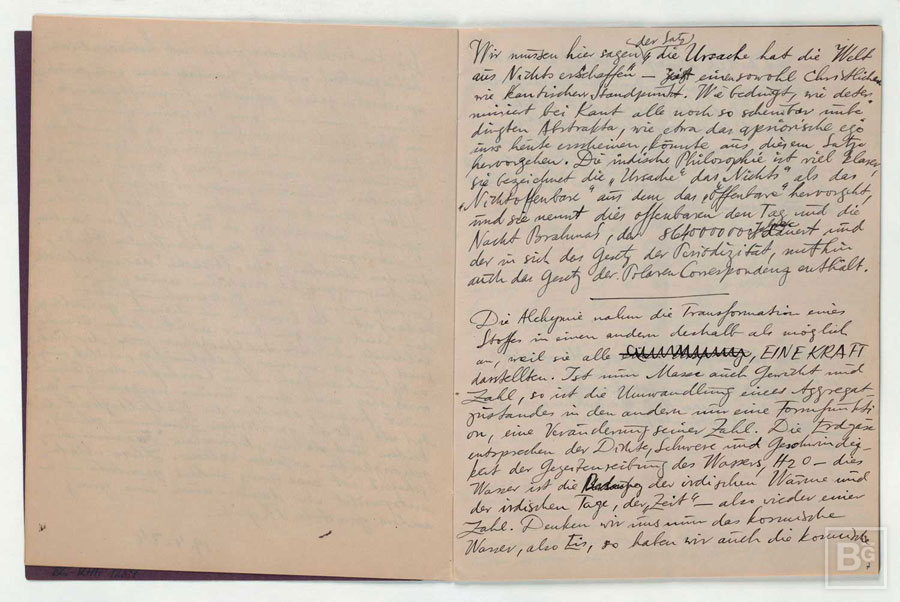 der Satz
Wir müssen hier sagen, die Ursache hat die Welt
aus Nichts erschaffen" – einer sowohl Christlichen
wie Kantischer Standpunkt. Wie bedingt, wie deter
miniert bei Kant alle noch so scheinbar unbe
dingten Abstrakta, wie etwa das apriorische ego
uns heute erscheinen, könnte aus diesem Satze
hervorgehen. Die indische Philosophie ist viel klarer,
sie bezeichnet die „Ursache" das „Nichts" als das
„Nichtoffenbare" aus dem das „Offenbare" hervorgeht,
und sie nennt dies offenbaren den Tag und die
Nacht Brahmas, der dauert und
der in sich das Gesetz der Periodizität, mithin
auch das Gesetz der Polaren Correspondenz enthält.
Die Alchemie nahm die Transformation eines
Stoffes in einen andern deshalb als möglich
an, weil sie alle EINE KRAFT
darstellten. Ist nun Masse auch Gewicht und
Zahl, so ist die Umwandlung eines Aggregat-
zustandes in den andern nur eine Formfunkti
on, eine Veränderung seiner Zahl. Die Erdgase
entsprechen der Dichte, Schwere und Geschwindig-
keit der Gezeitenreibung des Wassers, H2O – dies
Wasser ist die der irdischen Wärme und
der irdischen Tage, der „Zeit" – also wieder einer
Zahl. Denken wir uns nun das kosmische
Wasser, also Eis, so haben wir auch die kosmische
BG